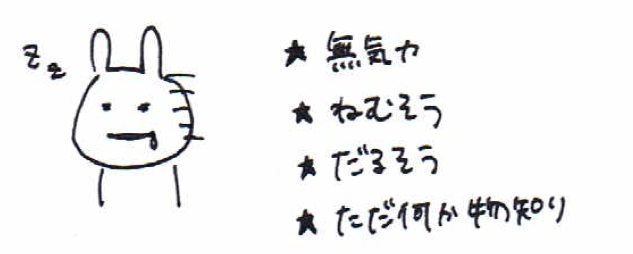 zz
★ 無気力
★ ねむそう
★ だるそう
★ ただ何か物知り